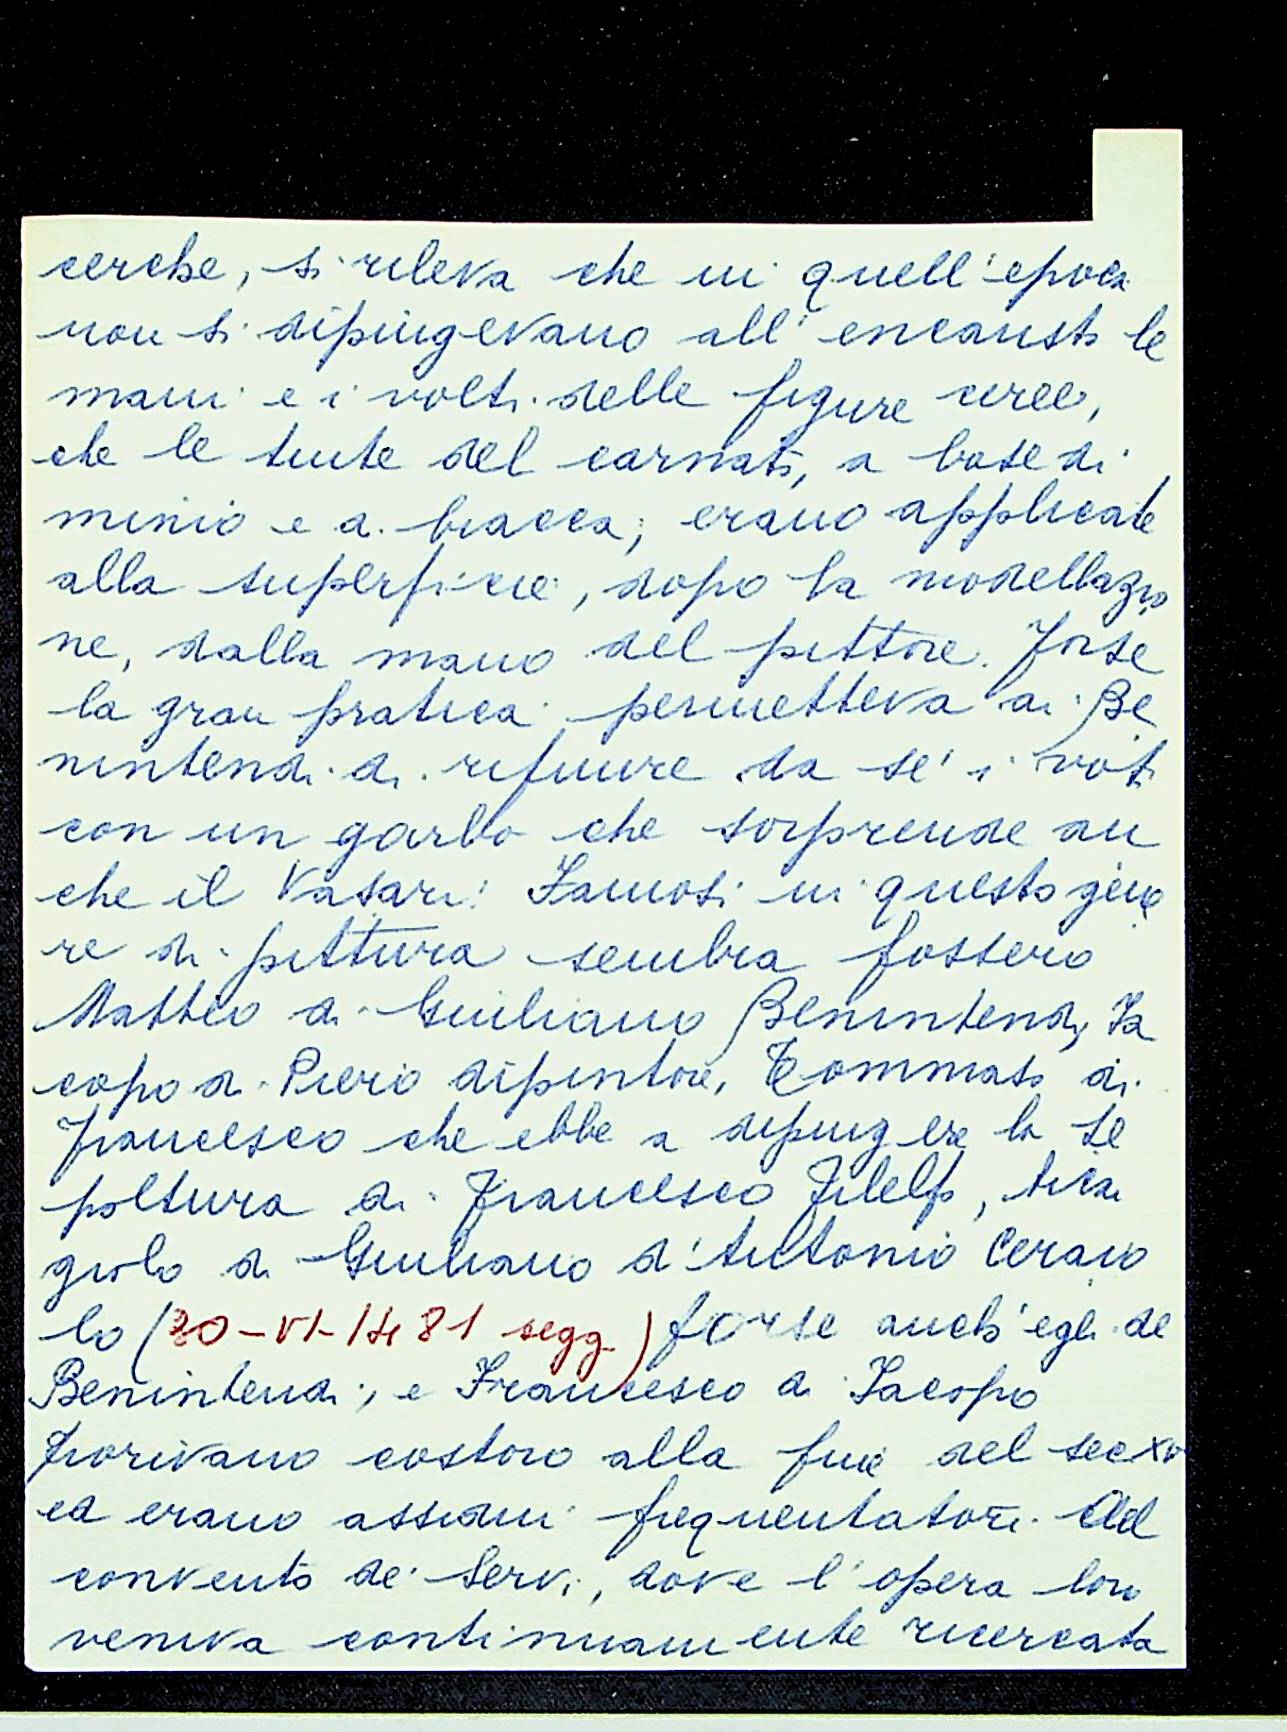 cerche, si rileva che in quell'epoca
non si dipingevano all'encausto le
mani e i volti delle figure ceree,
che le tinte del carnato, a base di
minio e di biacca, erano applicate
alla superficie, dopo la modellazio
ne, dalla mano del pittore. Forse
la gran pratica permetteva ai Be
nintendi di rifinire da sé i voti
con un garbo che sorprende an
che il Vasari! Famosi in questo gene
re di pittura sembra fossero
Matteo di Giuliano Benintendi, Ja
copo di Piero dipintore, Tommaso di
Francesco che ebbe a dipingere la se
poltura di Francesco Filelfo, Arcan
giolo di Giuliano d'Antonio Ceraiuo
lo (30-VI-1481 segg.) forse anch'egli de
Benintendi, e Francesco di Jacopo
Fiorivano costoro alla fine del sec XV
ed erano assidui frequentatori del
convento de' Servi, dove l'opera loro
veniva continuamente ricercata